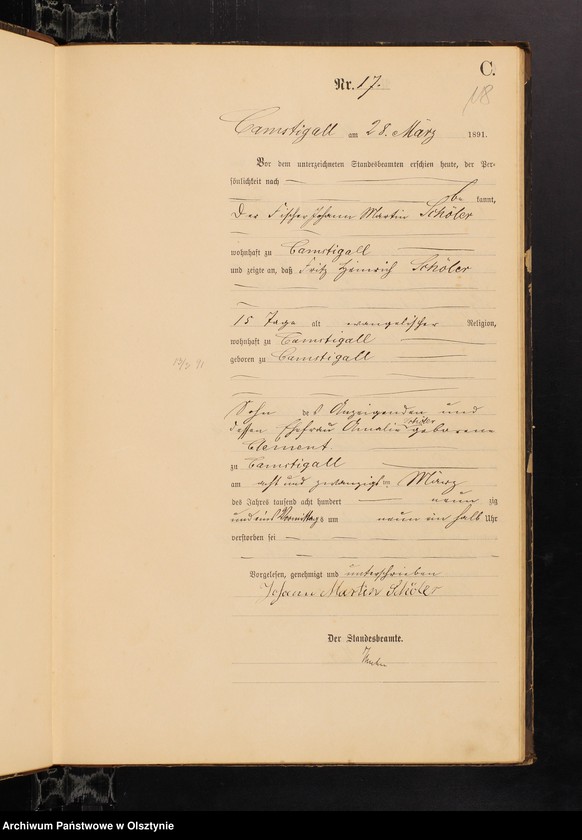 C.
Nr. 17.
18
Camstigall am 28. März 1891.
Vor dem unterzeichneten Standesbeamten erschien heute, der Per-
sönlichkeit nach
be kannt,
Der Fischer Johann Martin Schöler
wohnhaft zu Camstigall
und zeigte an, daß Fritz Heinrich Schöler
15 Tage alt evangelischer Religion,
wohnhaft zu Camstigall
geboren zu Camstigall
Sohn des Anzeigenden und
dessen Ehefrau Amalie Schöler geborene
Clement
zu Camstigall
am acht und zwanzigsten März
des Jahres tausend acht hundert neun zig
und eins Vormittags um neun ein halb Uhr
verstorben sei
Vorgelesen, genehmigt und unterschrieben
Johann Martin Schöler
Der Standesbeamte.
Archiwum Państwowe w Olsztynie